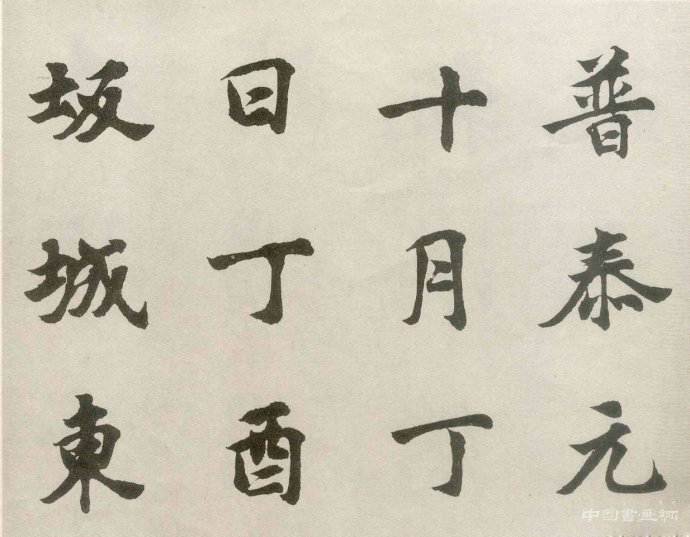 普泰元
十月丁
日丁酉
坂城東
中国書画網